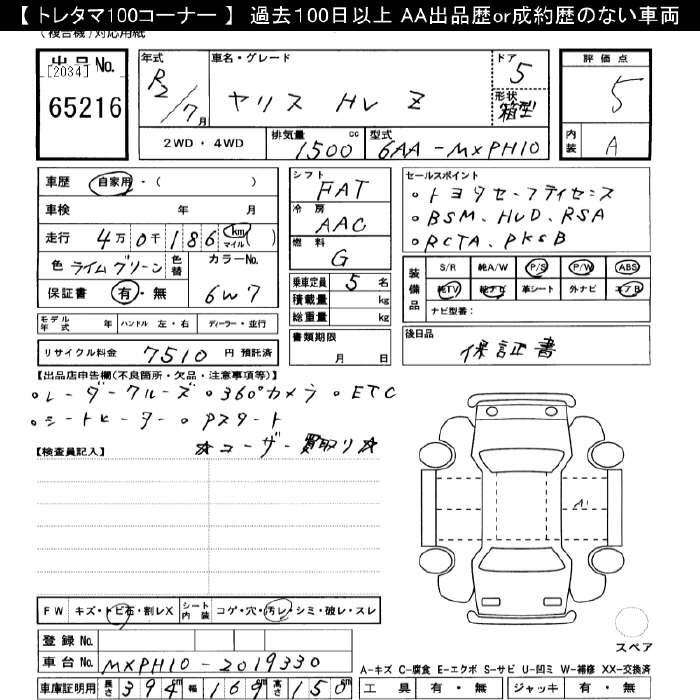 【 トレタマ100コーナー 】 過去100日以上 AA出品歴or成約歴のない車両
(複合機)対応用紙
出品No.
[2034]
65216
年式 R2/7月
車名・グレード
ヤリス HV Z
ドア 5
形状 箱型
評価点 5
内装 A
2WD・4WD
排気量 1500 cc
型式 6AA-MXPH10
車歴 自家用・( )
車検 年 月
走行 4万0千186 km マイル ( )
色 ライムグリーン 色替 カラーNo. 6W7
保証書 有・無
シフト FAT
冷房 AAC
燃料 G
乗車定員 5名
積載量 kg
総重量 kg
書類期限 月 日
セールスポイント
・トヨタセーフティセンス
・BSM、HUD、RSA
・RCTA、PKSB
装備品
S/R 純A/W P/S P/W ABS
純TV 純ナビ 革シート 外ナビ エアB
ナビ型番:
後日品 保証書
モデル年式 年 ハンドル 左・右 ディーラー・並行
リサイクル料金 7510 円 預託済
【出品店申告欄(不良箇所・欠品・注意事項等)】
・レーダークルーズ ・360°カメラ ・ETC
・シートヒーター ・Pスタート
☆ユーザー買取り☆
【検査員記入】
A1
FW キズ・トビ石・割レX シート内装 コゲ・穴・汚レ・シミ・破レ・スレ
登録 No.
車台 No. MXPH10-2019330
車庫証明用 長さ 394cm 幅 169cm 高さ 150cm
スペア
A-キズ C-腐食 E-エクボ S-サビ U-凹ミ W-補修 XX-交換済
工具 有・無 ジャッキ 有・無